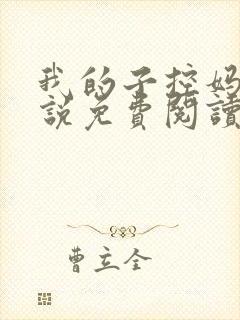 我的子控妈
說免費閱讀
曹立全